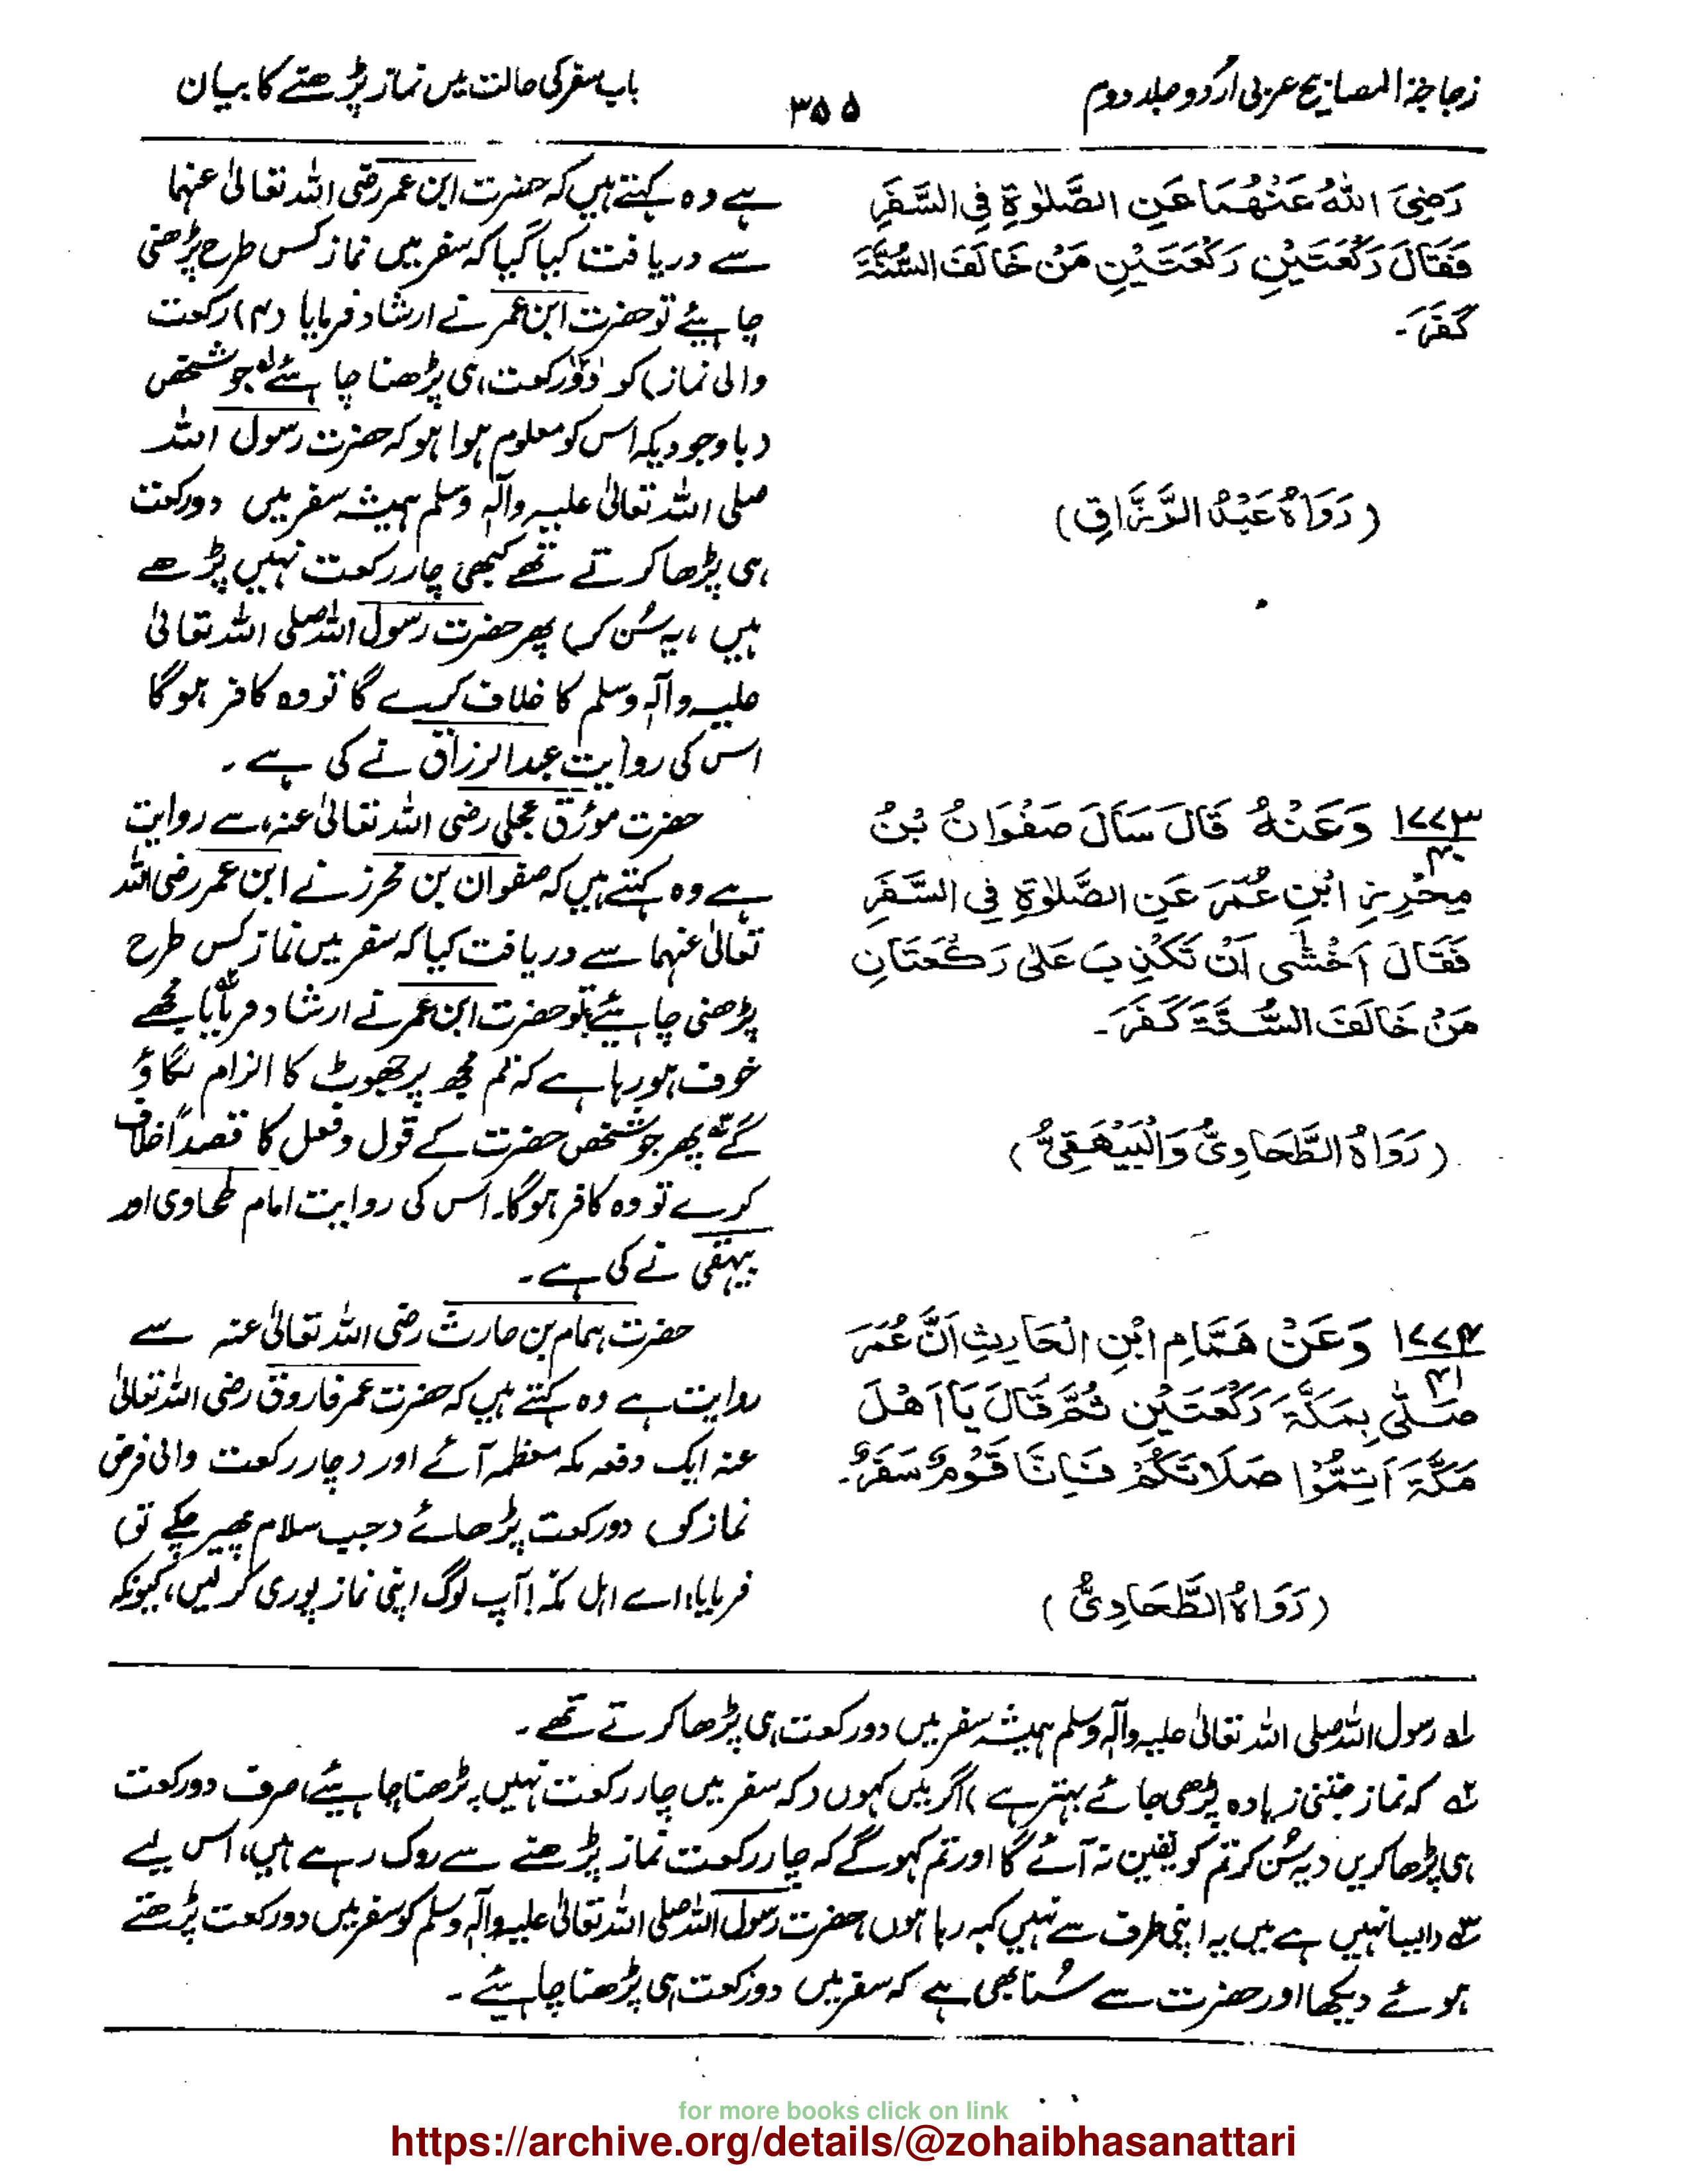 زجاجۃ المصابیح عربی اردو جلد دوم
۳۵۵
باب سفر کی حالت میں نماز پڑھنے کا بیان
رَضِیَ اللهُ عَنْهُمَا عَنِ الصَّلٰوةِ فِی السَّفَرِ
فَقَالَ رَكْعَتَيْنِ رَكْعَتَيْنِ مَنْ خَالَفَ السُّنَّةَ
كَفَرَ۔
(رَوَاهُ عَبْدُ الرَّزَّاقِ)
ہے وہ کہتے ہیں کہ حضرت ابن عمر رضی اللہ تعالیٰ عنہما
سے دریافت کیا گیا کہ سفر میں نماز کس طرح پڑھنی
چاہیئے تو حضرت ابن عمر نے ارشاد فرمایا (۴) رکعت
والی نماز) کو دو رکعت ہی پڑھنا چاہئے لہ جو شخص
(باوجودیکہ اس کو معلوم ہوا ہو کہ حضرت رسول اللہ
صلی اللہ تعالیٰ علیہ وآلہٖ وسلم ہمیشہ سفر میں دو رکعت
ہی پڑھا کرتے تھے کبھی چار رکعت نہیں پڑھے
ہیں، یہ سُن کر) پھر حضرت رسول اللہ صلی اللہ تعالیٰ
علیہ وآلہٖ وسلم کا خلاف کرے گا تو وہ کافر ہوگا
اس کی روایت عبدالرزاق نے کی ہے۔
۱۷۷۳
۳۰
وَعَنْهُ قَالَ سَاَلَ صَفْوَانُ بْنُ
مِحْرِزِ ابْنِ عُمَرَ عَنِ الصَّلٰوةِ فِی السَّفَرِ
فَقَالَ اَخْشٰی اَنْ تَكْذِبَ عَلٰی رَكْعَتَانِ
مَنْ خَالَفَ السُّنَّةَ كَفَرَ۔
(رَوَاهُ الطَّحَاوِیُّ وَالْبَيْهَقِیُّ)
حضرت مورّق عجلی رضی اللہ تعالیٰ عنہ، سے روایت
ہے وہ کہتے ہیں کہ صفوان بن محرز نے ابن عمر رضی اللہ
تعالیٰ عنہما سے دریافت کیا کہ سفر میں نماز کس طرح
پڑھنی چاہیئے؟ تو حضرت ابن عمر نے ارشاد فرمایا مجھے
خوف ہو رہا ہے کہ تم مجھ پر جھوٹ کا الزام لگاؤ
گے پھر جو شخص حضرت کے قول وفعل کا قصداً خلاف
کرے تو وہ کافر ہوگا۔ اس کی روایت امام طحاوی اور
بیہقی نے کی ہے۔
۱۷۷۴
۳۱
وَعَنْ هَمَّامِ ابْنِ الْحَارِیثِ اَنَّ عُمَرَ
صَلّٰی بِمَكَّةَ رَكْعَتَيْنِ ثُمَّ قَالَ يَا اَهْلَ
مَكَّةَ اَتِمُّوْا صَلَاتَكُمْ فَاِنَّا قَوْمٌ سَفْرٌ۔
(رَوَاهُ الطَّحَاوِیُّ)
حضرت ہمام بن حارث رضی اللہ تعالیٰ عنہ سے
روایت ہے وہ کہتے ہیں کہ حضرت عمر فاروق رضی اللہ تعالیٰ
عنہ ایک دفعہ مکہ معظمہ آئے اور (چار رکعت والی فرض
نماز کو) دو رکعت پڑھائے (جب سلام پھیر چکے تو)
فرمایا، اے اہل مکّہ! آپ لوگ اپنی نماز پوری کر لیں، کیونکہ
لہ رسول اللہ صلی اللہ تعالیٰ علیہ وآلہٖ وسلم ہمیشہ سفر میں دو رکعت ہی پڑھا کرتے تھے۔
۲ہ کہ نماز جتنی زیادہ پڑھی جائے بہتر ہے) اگر میں کہوں (کہ سفر میں چار رکعت نہیں پڑھنا چاہیئے، صرف دو رکعت
ہی پڑھا کریں (یہ سُن کر تم کو یقین نہ آئے گا اور تم کہو گے کہ چار رکعت نماز پڑھنے سے روک رہے ہیں، اس لیے
۳ہ (ایسا نہیں ہے میں یہ اپنی طرف سے نہیں کہہ رہا ہوں، حضرت رسول اللہ صلی اللہ تعالیٰ علیہ وآلہٖ وسلم کو سفر میں دو رکعت پڑھتے
ہوئے دیکھا اور حضرت سے سُنا بھی ہے کہ سفر میں دو رکعت ہی پڑھنا چاہیئے۔
for more books click on link
https://archive.org/details/@zohaibhasanattari